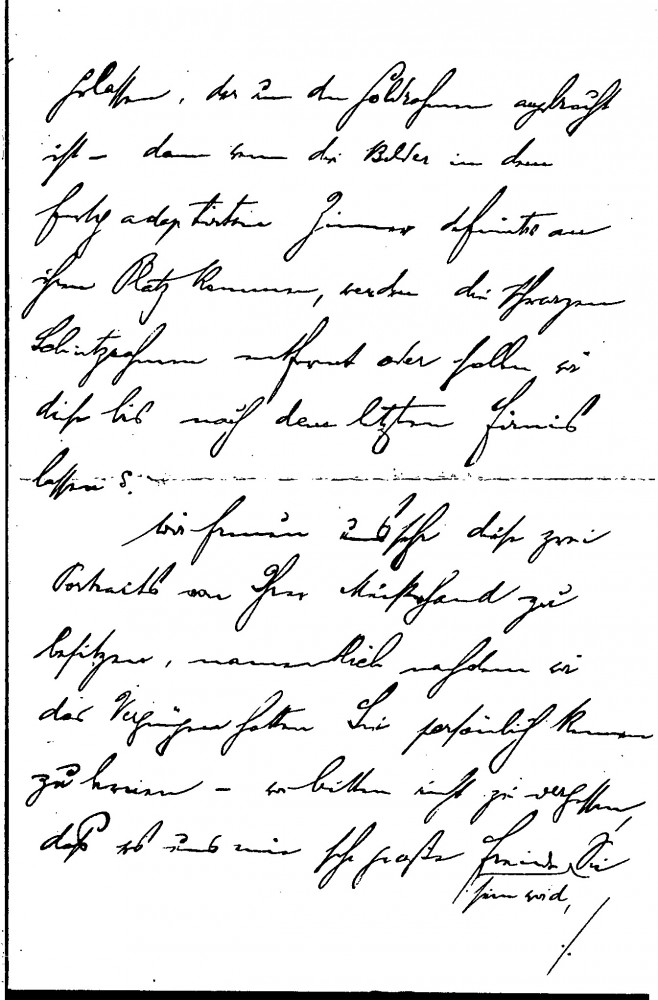 gelassen, der um den Goldrahmen angebracht
ist – dann wenn die Bilder in dem
fertig adaptirten Zimmer definitiv an
ihren Platz kommen, werden die schwarzen
Schutzrahmen entfernt oder sollen wir
diese bis nach dem letzten Firnis
lassen?
Wir freuen uns sehr diese zwei
Portraits von Ihrer Meisterhand zu
besitzen, namentlich nachdem wir
das Vergnügen hatten Sie persönlich kennen
zu lernen – wir bitten nicht zu vergessen,
daß es uns eine sehr große Freude Sie
sein wird,
./.